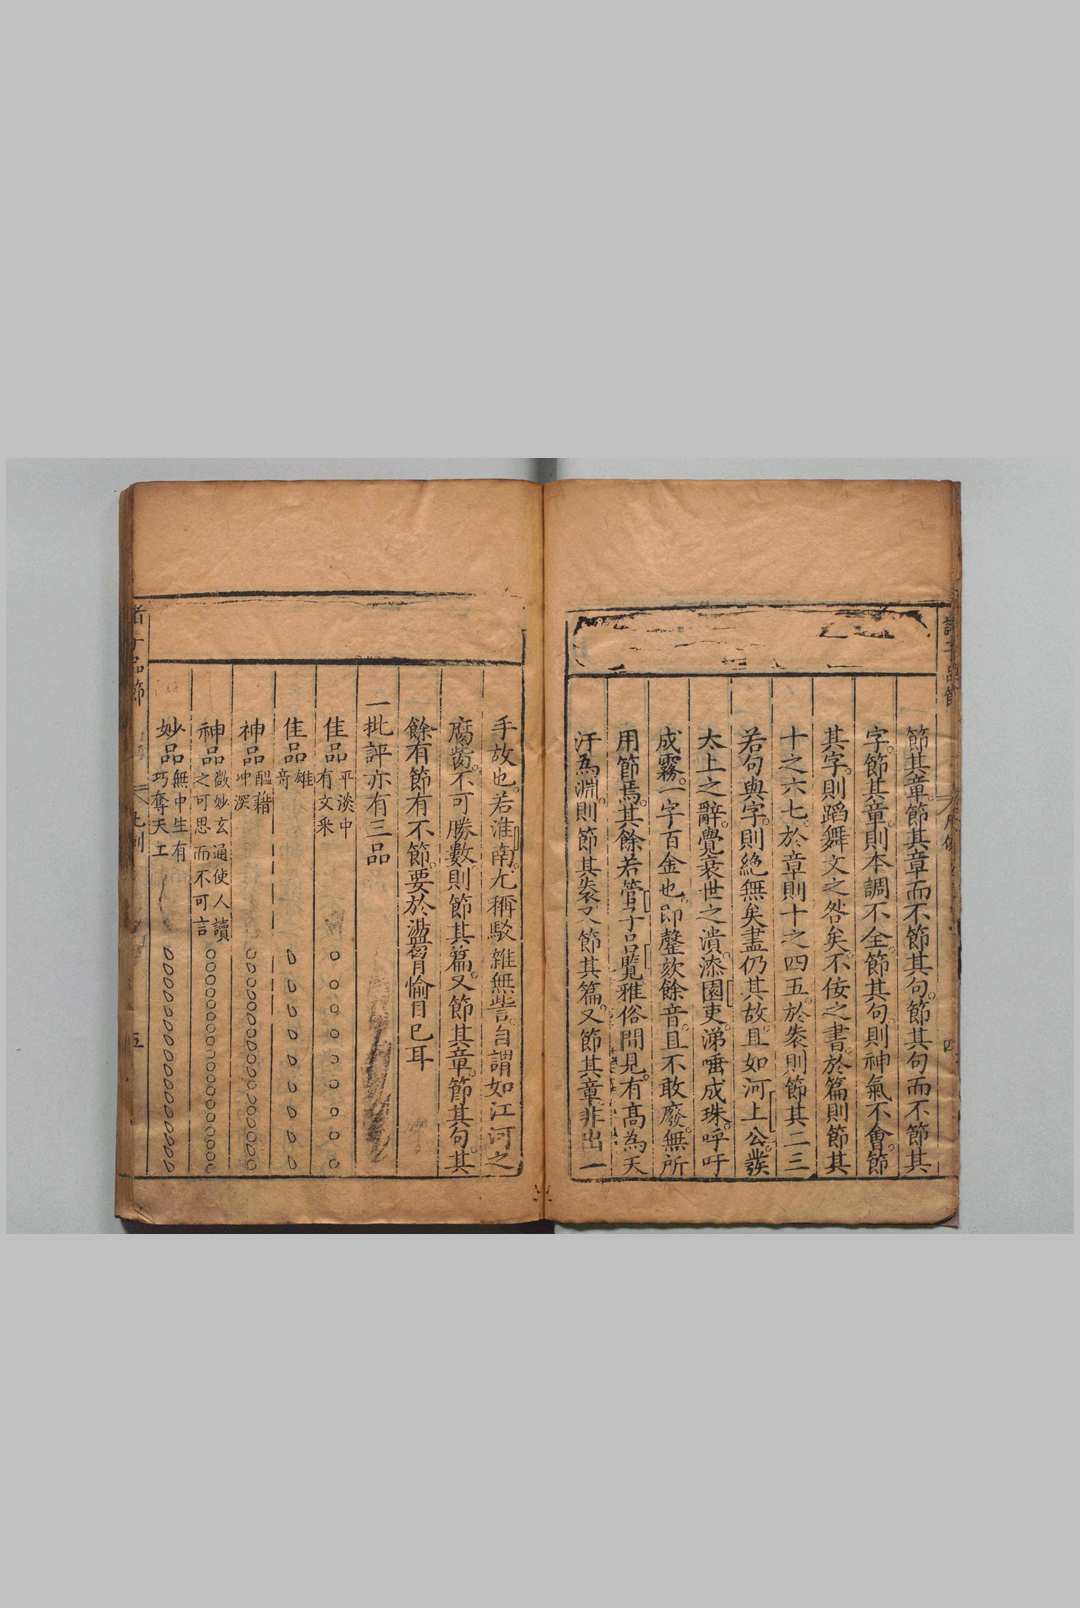 節其章節其章而不節其句節其句而不節其
字節其章則本調不全節其句則神氣不會節
其字則蹈舞文之咎矣不佞之書於篇則節其
十之六七於章則十之四五於袠則節其二三
若句與字則絕無矣盡仍其故且如河上公發
太上之辭覺衰世之潰漆園吏涕唾成珠呼吁
成霧一字百金也即謦欬餘音且不敢廢無所
用節焉其餘若管子呂覽雅俗間見有高為天
汙為淵則節其袠又節其篇又節其章非出一
手故也若淮南尤稱駁雜無訾自謂如江河之
腐胔不可勝數則節其篇又節其章節其句其
餘有節有不節要於盪胷愉目已耳
一批評亦有三品
佳品 平淡中有文采
佳品 雄奇
神品 醞藉冲深
神品 微妙玄通使人讀之可思而不可言
妙品 無中生有巧奪天工
諸子品節
五